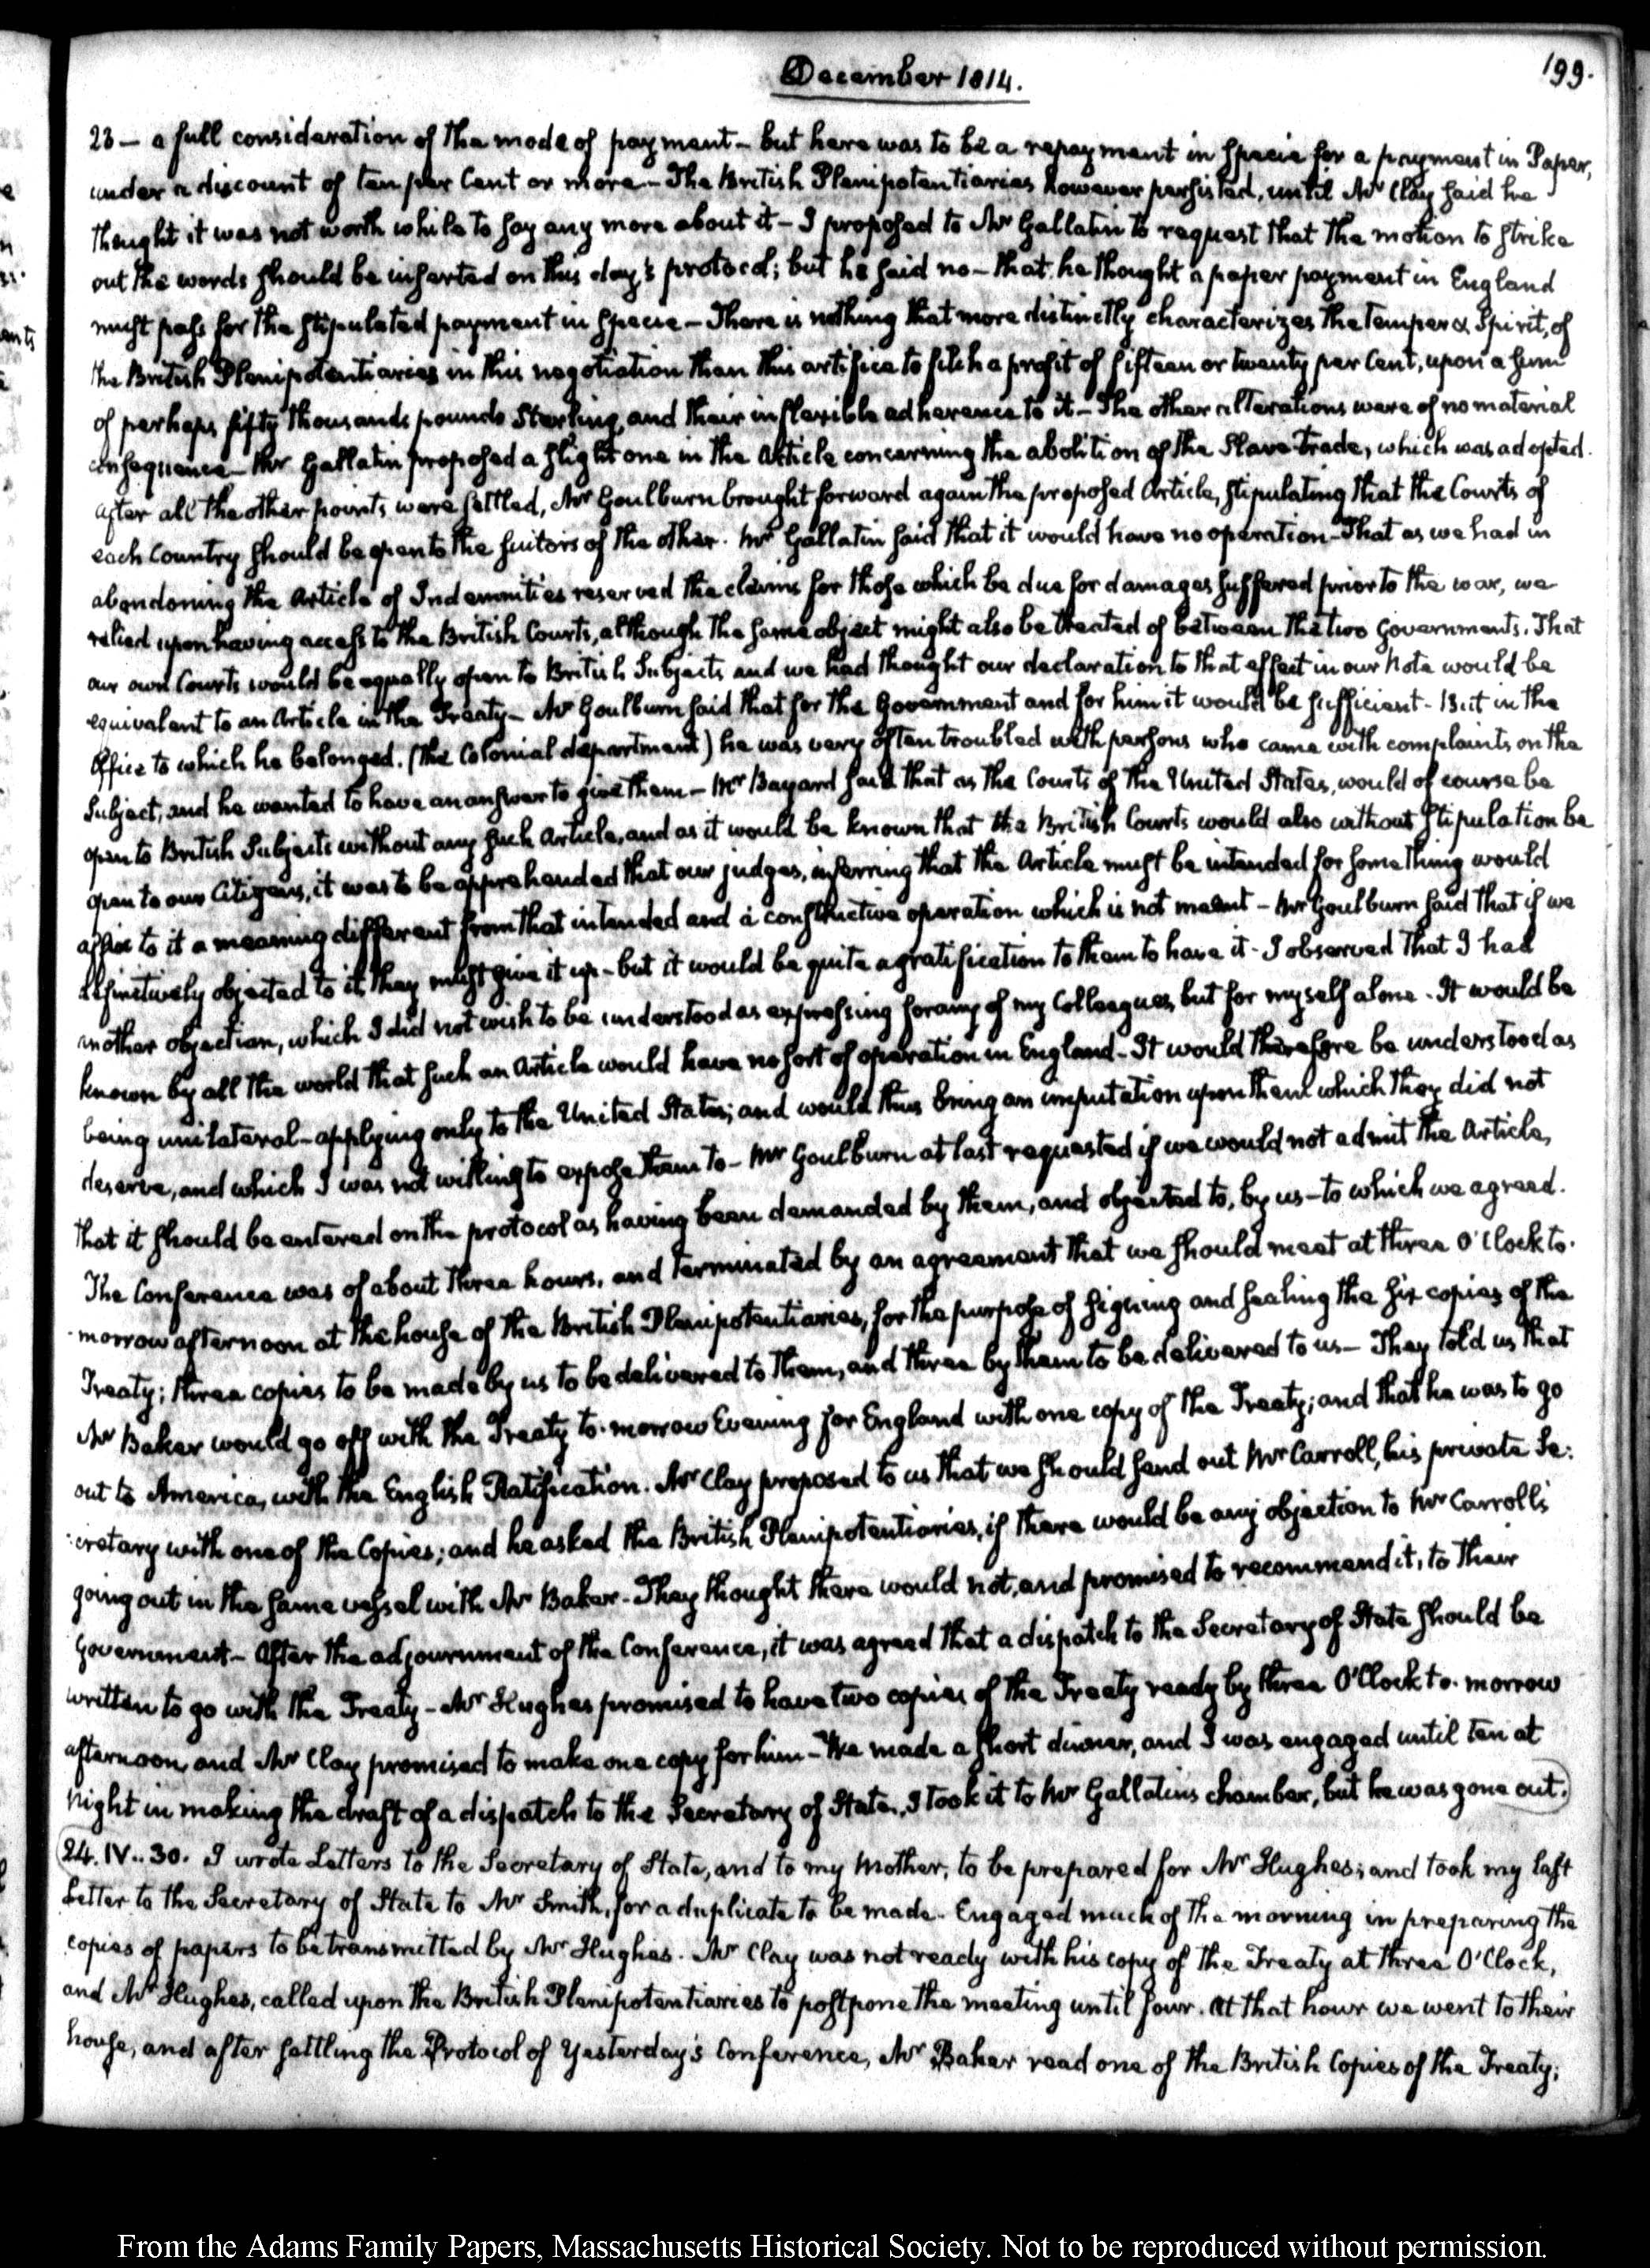 December 1814.
199.
23 — a full consideration of the mode of payment – but here was to be a repayment in Specie for a payment in Paper,
under a discount of ten per Cent or more – The British Plenipotentiaries however persisted, until Mr Clay said he
thought it was not worth while to say any more about it – I proposed to Mr Gallatin to request that the motion to strike
out the words should be inserted on this day's protocol; but he said no – that he thought a paper payment in England
must pass for the stipulated payment in specie – There is nothing that more distinctly characterizes the temper & Spirit, of
the British Plenipotentiaries in this negotiation than this artifice to filch a profit of fifteen or twenty per Cent, upon a sum
of perhaps fifty thousands pounds Sterling, and their inflexible adherence to it – The other alterations were of no material
consequence – Mr Gallatin proposed a slight one in the Article concerning the abolition of the Slave-trade, which was adopted.
After all the other points were settled, Mr Goulburn brought forward again the proposed Article, stipulating that the Courts of
each Country should be open to the suitors of the other. Mr Gallatin said that it would have no operation – That as we had in
abandoning the Article of Indemnities reserved the claims for those which be due for damages suffered prior to the war, we
relied upon having access to the British Courts, although the same object might also be treated of between the two Governments. That
our own Courts would be equally open to British Subjects and we had thought our declaration to that effect in our Note would be
equivalent to an Article in the Treaty – Mr Goulburn said that for the Government and for him it would be sufficient – But in the
Office to which he belonged, (the Colonial department) he was very often troubled with persons who came with complaints on the
subject, and he wanted to have an answer to give them – Mr Bayard said that as the Courts of the United States, would of course be
open to British Subjects without any such Article, and as it would be known that the British Courts would also without stipulation be
open to our Citizens, it was to be apprehended that our judges, inferring that the Article must be intended for something would
affix to it a meaning different from that intended and a constructive operation which is not meant – Mr Goulburn said that if we
definitively objected to it they must give it up – but it would be quite a gratification to them to have it – I observed that I had
another objection, which I did not wish to be understood as expressing for any of my Colleagues, but for myself alone – It would be
known by all the world that such an Article would have no sort of operation in England – It would therefore be understood as
being unilateral – applying only to the United States; and would thus bring an imputation upon them which they did not
deserve, and which I was not willing to expose them to – Mr Goulburn at last requested if we would not admit the Article,
that it should be entered on the protocol as having been demanded by them, and objected to, by us – to which we agreed.
The Conference was of about three hours, and terminated by an agreement that we should meet at three O'Clock to-
-morrow afternoon at the house of the British Plenipotentiaries, for the purpose of signing and sealing the six copies of the
Treaty; three copies to be made by us to be delivered to them, and three by them to be delivered to us – They told us that
Mr Baker would go off with the Treaty to-morrow Evening for England with one copy of the Treaty; and that he was to go
out to America, with the English Ratification. Mr Clay proposed to us that we should send out Mr Carroll, his private Se-
-cretary with one of the Copies; and he asked the British Plenipotentiaries, if there would be any objection to Mr Carroll's
going out in the same vessel with Mr Baker – They thought there would not, and promised to recommend it, to their
Government – After the adjournment of the Conference, it was agreed that a dispatch to the Secretary of State should be
written to go with the Treaty – Mr Hughes promised to have two copies of the Treaty ready by three O'Clock to-morrow
afternoon, and Mr Clay promised to make one copy for him – We made a short dinner, and I was engaged until ten at
Night in making the draft of a dispatch to the Secretary of State. I took it to Mr Gallatin's chamber, but he was gone out.
24. IV..30. I wrote Letters to the Secretary of State, and to my Mother, to be prepared for Mr Hughes; and took my last
Letter to the Secretary of State to Mr Smith, for a duplicate to be made. Engaged much of the morning in preparing the
copies of papers to be transmitted by Mr Hughes. Mr Clay was not ready with his copy of the Treaty at three O'Clock,
and Mr Hughes, called upon the British Plenipotentiaries to postpone the meeting until four. At that hour we went to their
house, and after settling the Protocol of Yesterday's Conference, Mr Baker read one of the British Copies of the Treaty;
From the Adams Family Papers, Massachusetts Historical Society. Not to be reproduced without permission.